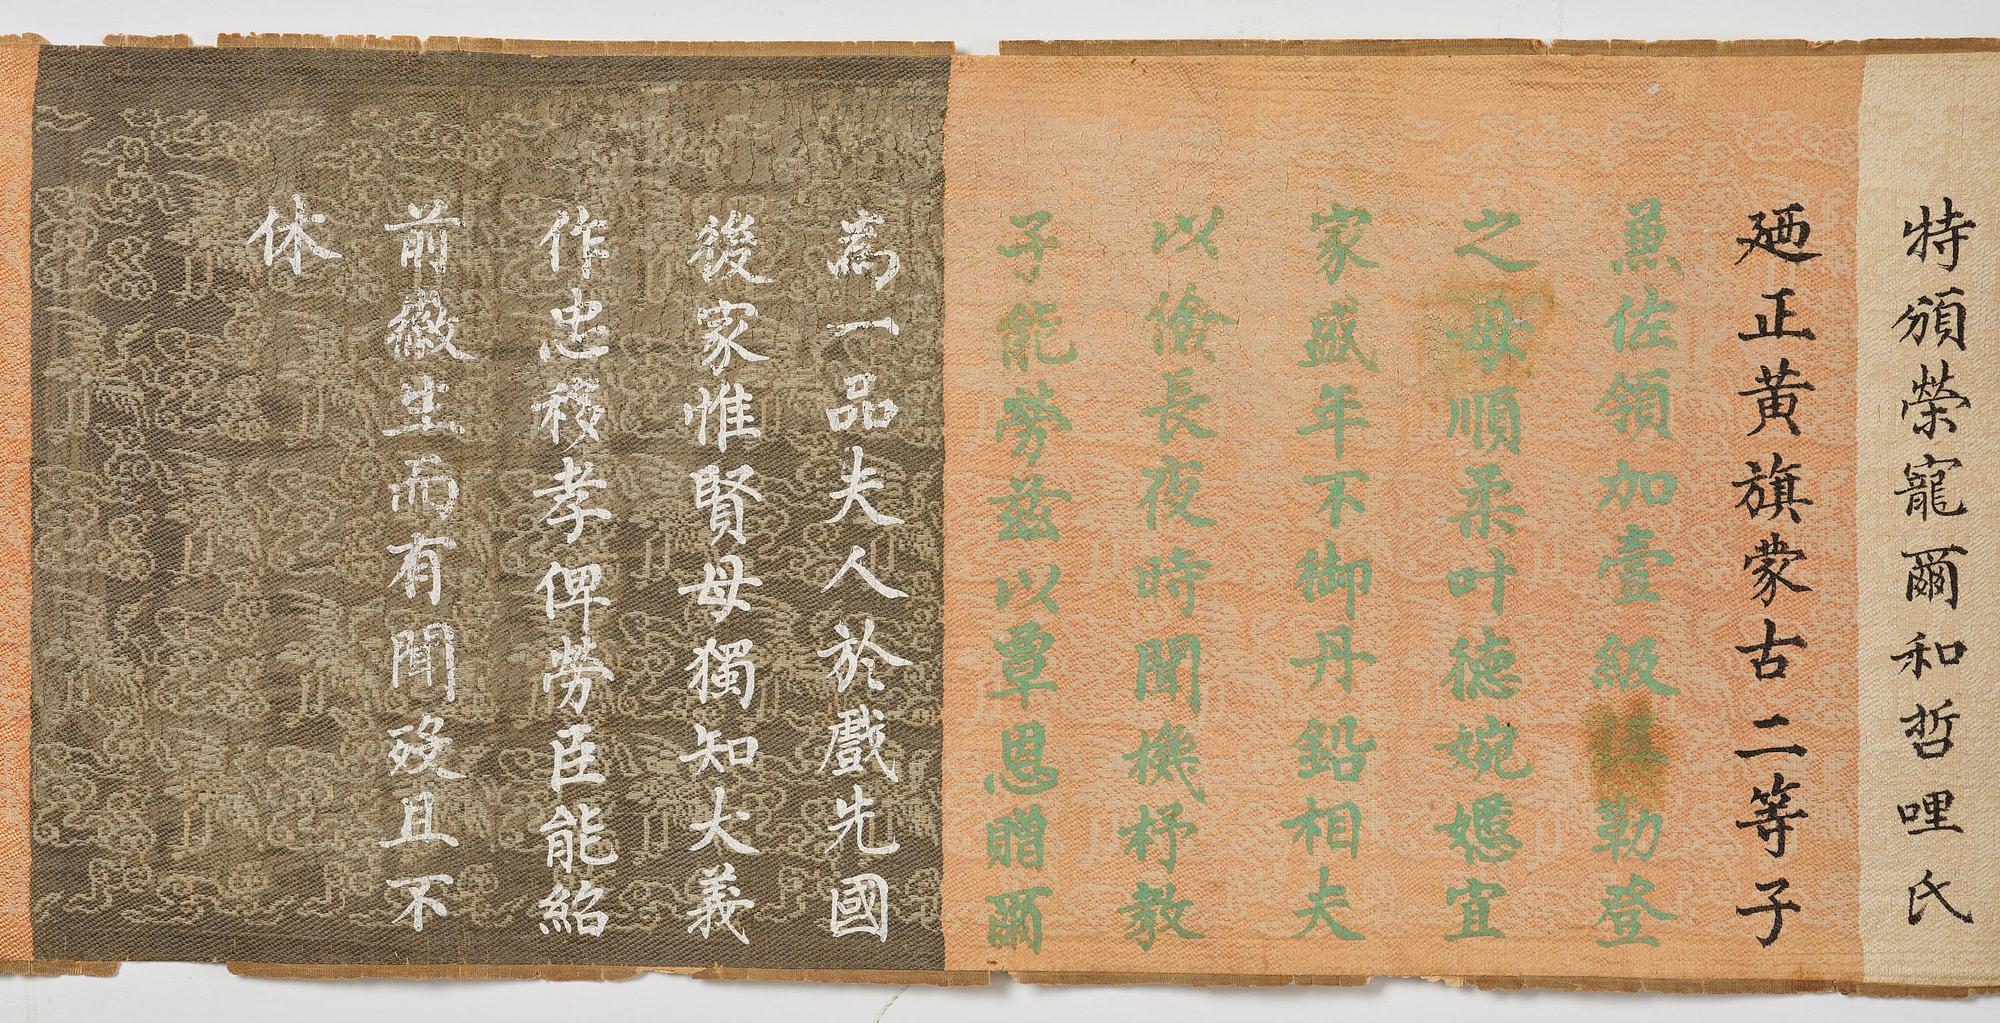 特頒榮寵爾和哲哩氏
廼正黃旗蒙古二等子
兼佐領加壹級 勒登
之母順柔叶德婉嫕宜
家盛年不御丹鉛相夫
以儉長夜時聞機杼教
子能勞茲以覃恩贈爾
為一品夫人於戲先國
後家惟賢母獨知大義
作忠移孝俾勞臣能紹
前徽生而有聞歿且不
休